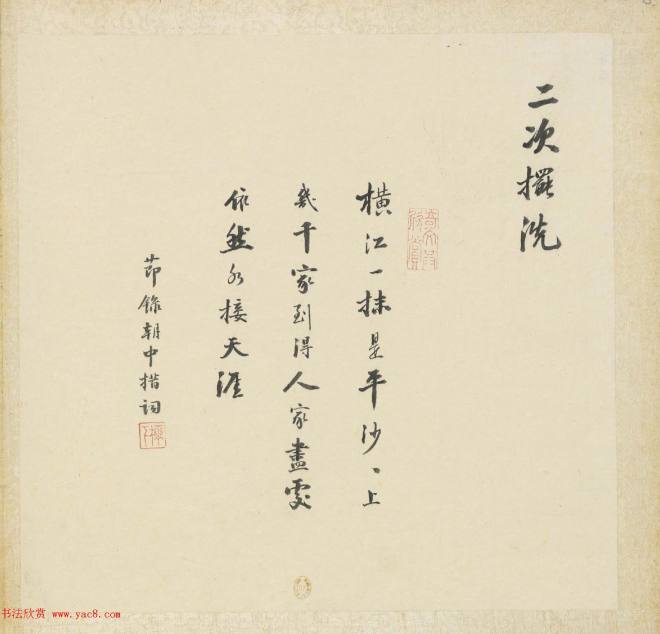 二次擺洗
橫江一抹是平沙、上
幾千家到得人家盡處
依然水接天涯
節錄朝中措詞
书法欣赏 www.yac8.com